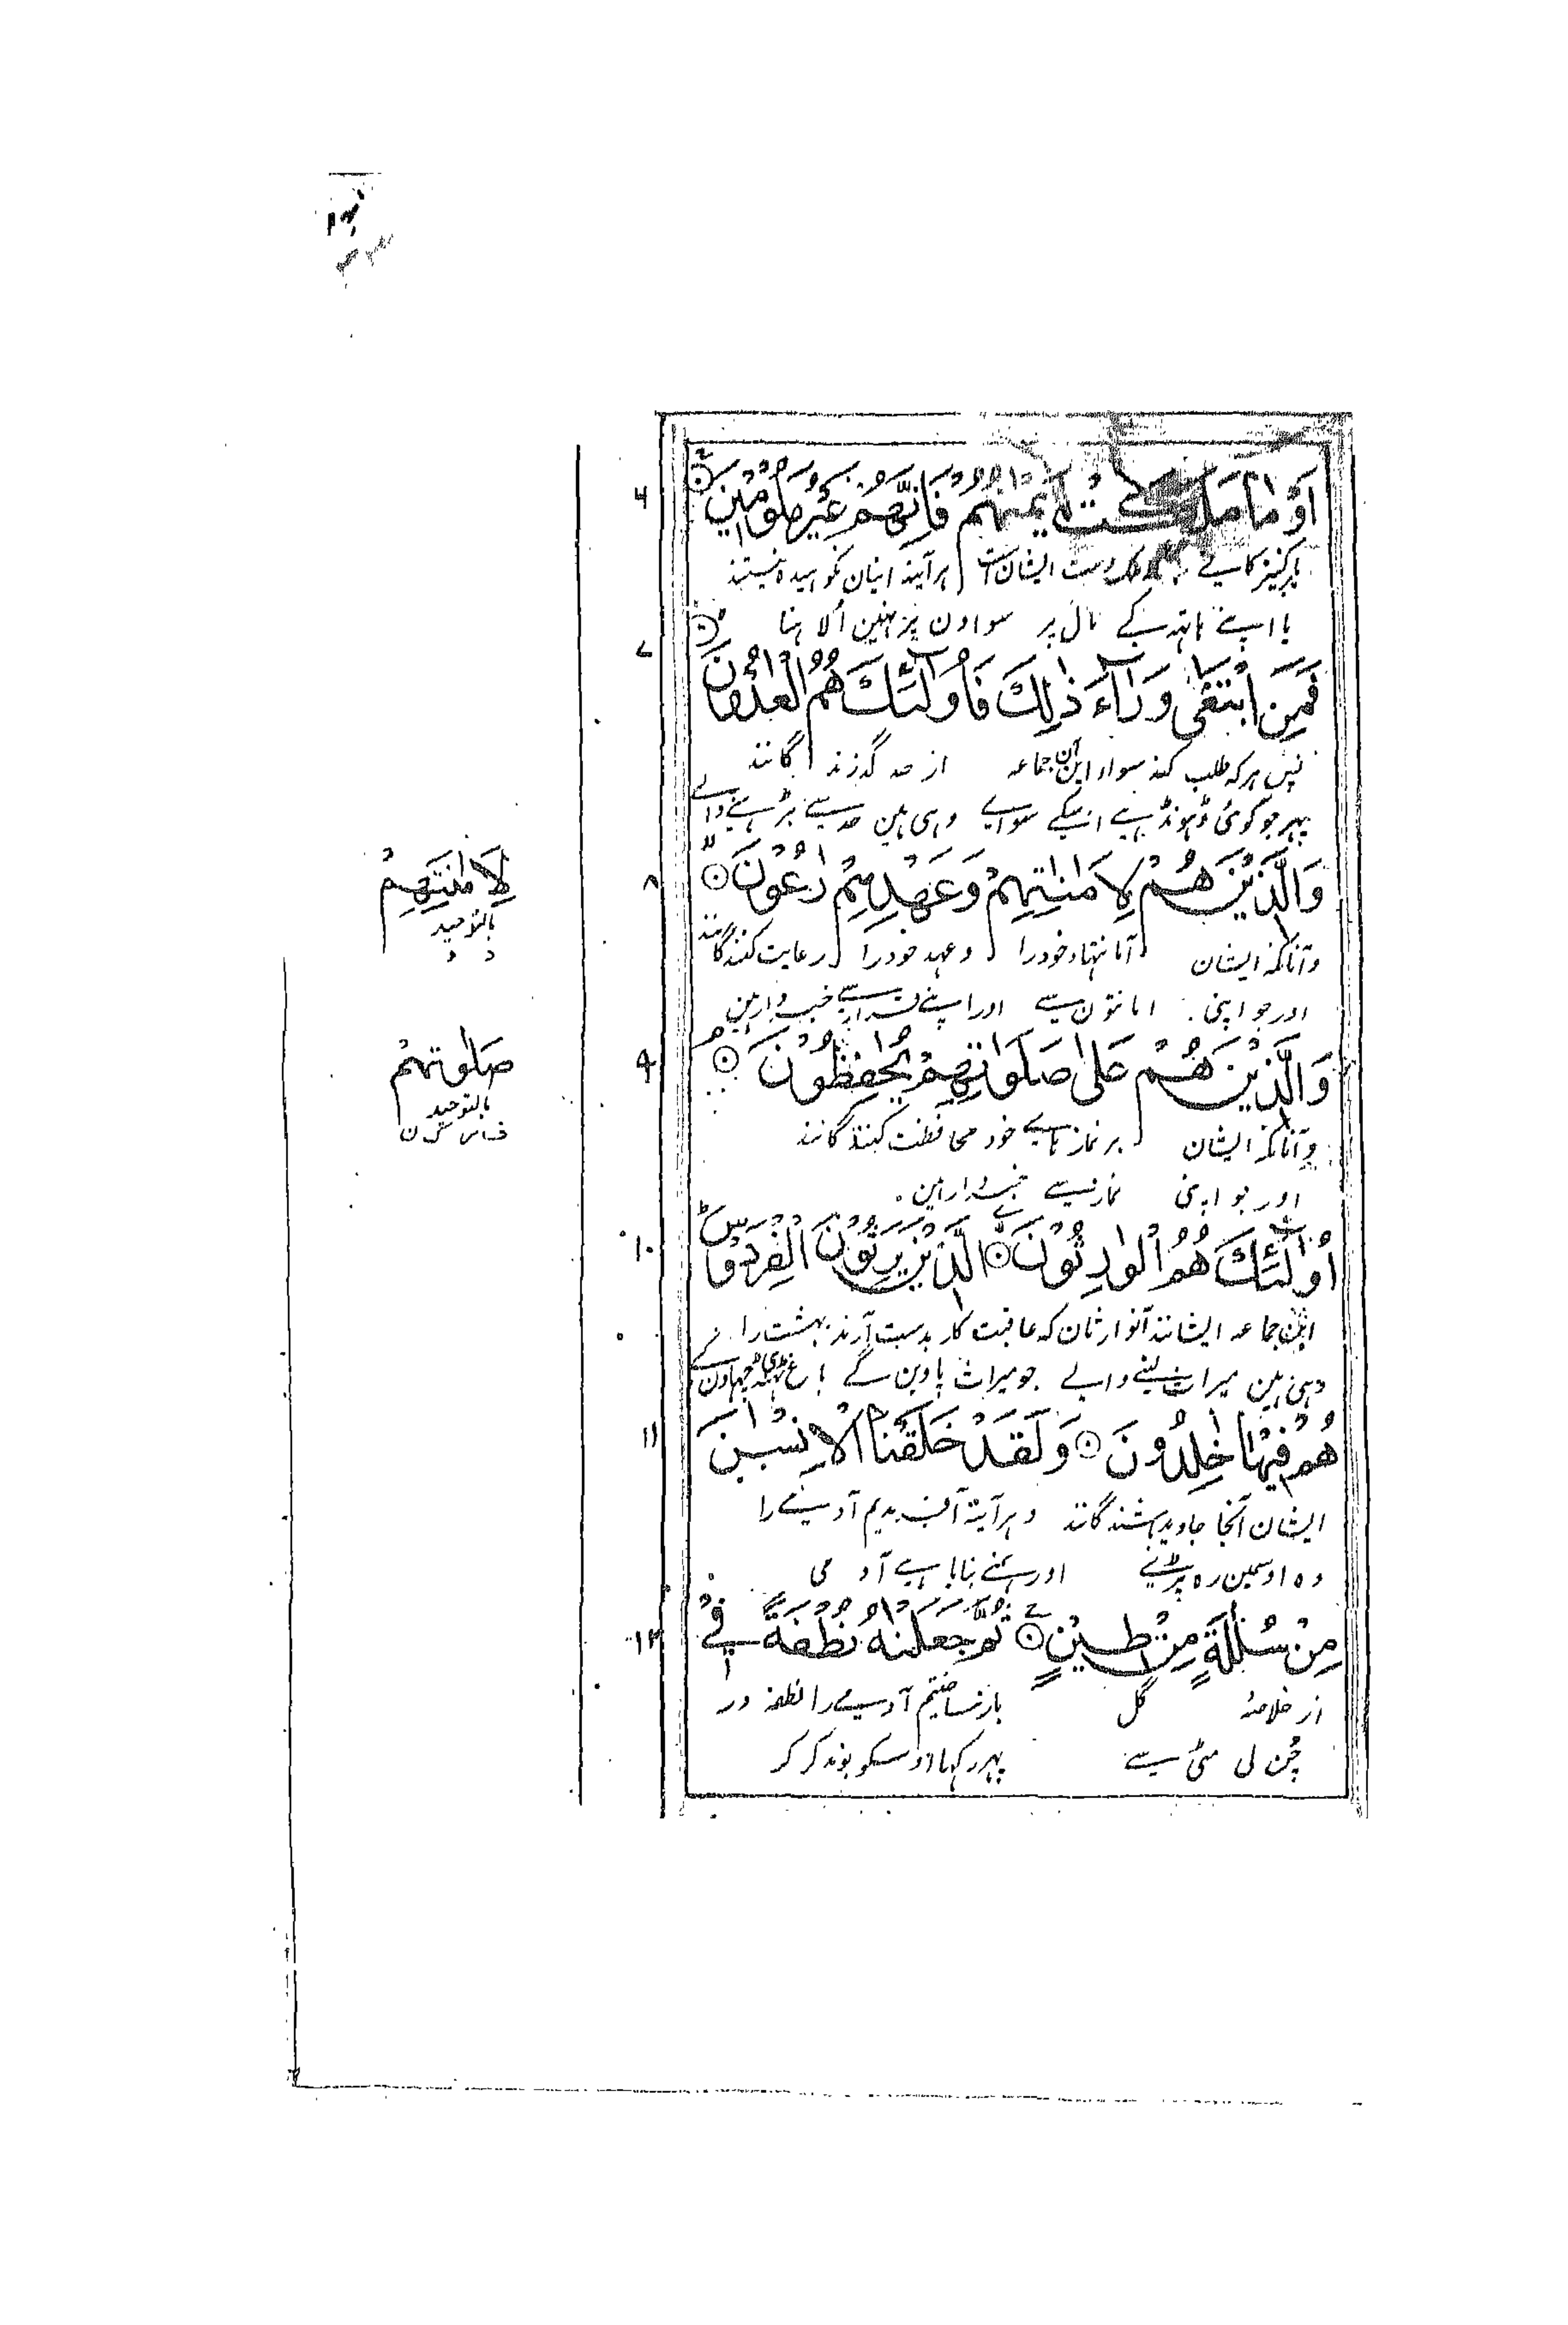 اَوْ مَا مَلَكَتْ اَيْمٰنُهُمْ فَاِنَّهُمْ غَيْرُ مَلُوْمِيْنَ
۶
ایشان است هرآینه اینان نکوهیده نیستند
یا اپنے ہاتہہ کے مال پر سو اون پر نہین اُلاہنا
۷
فَمَنِ ابْتَغٰى وَرَآءَ ذٰلِكَ فَاُولٰٓئِكَ هُمُ الْعٰدُوْنَ
پس هرکه طلب کند سواء این آن جماعه از حد گذرندگانند
پہر جو کوئی ڈہونڈہے اسکے سواے وہی ہین حد سے بڑہنے والے
وَالَّذِيْنَ هُمْ لِاَمٰنٰتِهِمْ وَعَهْدِهِمْ رٰعُوْنَ
۸
وآنانکه ایشان امانتهاء خود را وعهد خود را رعایت کنندگانند
اور جو اپنی امانتون سے اور اپنے قرار سے خبردار ہین
وَالَّذِيْنَ هُمْ عَلٰى صَلَوٰتِهِمْ يُحٰفِظُوْنَ
۹
وآنانکه ایشان بر نمازهاے خود محافظت کنندگانند
اور جو اپنی نماز سے خبردار ہین
اُولٰٓئِكَ هُمُ الْوٰرِثُوْنَ الَّذِيْنَ يَرِثُوْنَ الْفِرْدَوْسَ
۱۰
این جماعه ایشانند آنوارثان که عاقبت کار بدست آرند بهشت را
وہی ہین میراث لینے والے جو میراث پاوین گے باغ ٹہنڈی چہاون کے
هُمْ فِيْهَا خٰلِدُوْنَ وَلَقَدْ خَلَقْنَا الْاِنْسٰنَ
۱۱
ایشان آنجا جاوید باشندگانند و هرآینه آفریدیم آدمی را
وہ اوسمین رہ پڑے اور ہمنے بنایا ہے آدمی
مِنْ سُلٰلَةٍ مِنْ طِيْنٍ ثُمَّ جَعَلْنٰهُ نُطْفَةً فِيْ
۱۲
از خلاصۂ گل باز ساختیم آدمی را نطفه در
چُن لی مٹی سے پہر رکہا اوسکو بوند کر کر
لِاَمٰنَتِهِمْ
بالتوحید
د
صَلٰوتِهِمْ
بالتوحید